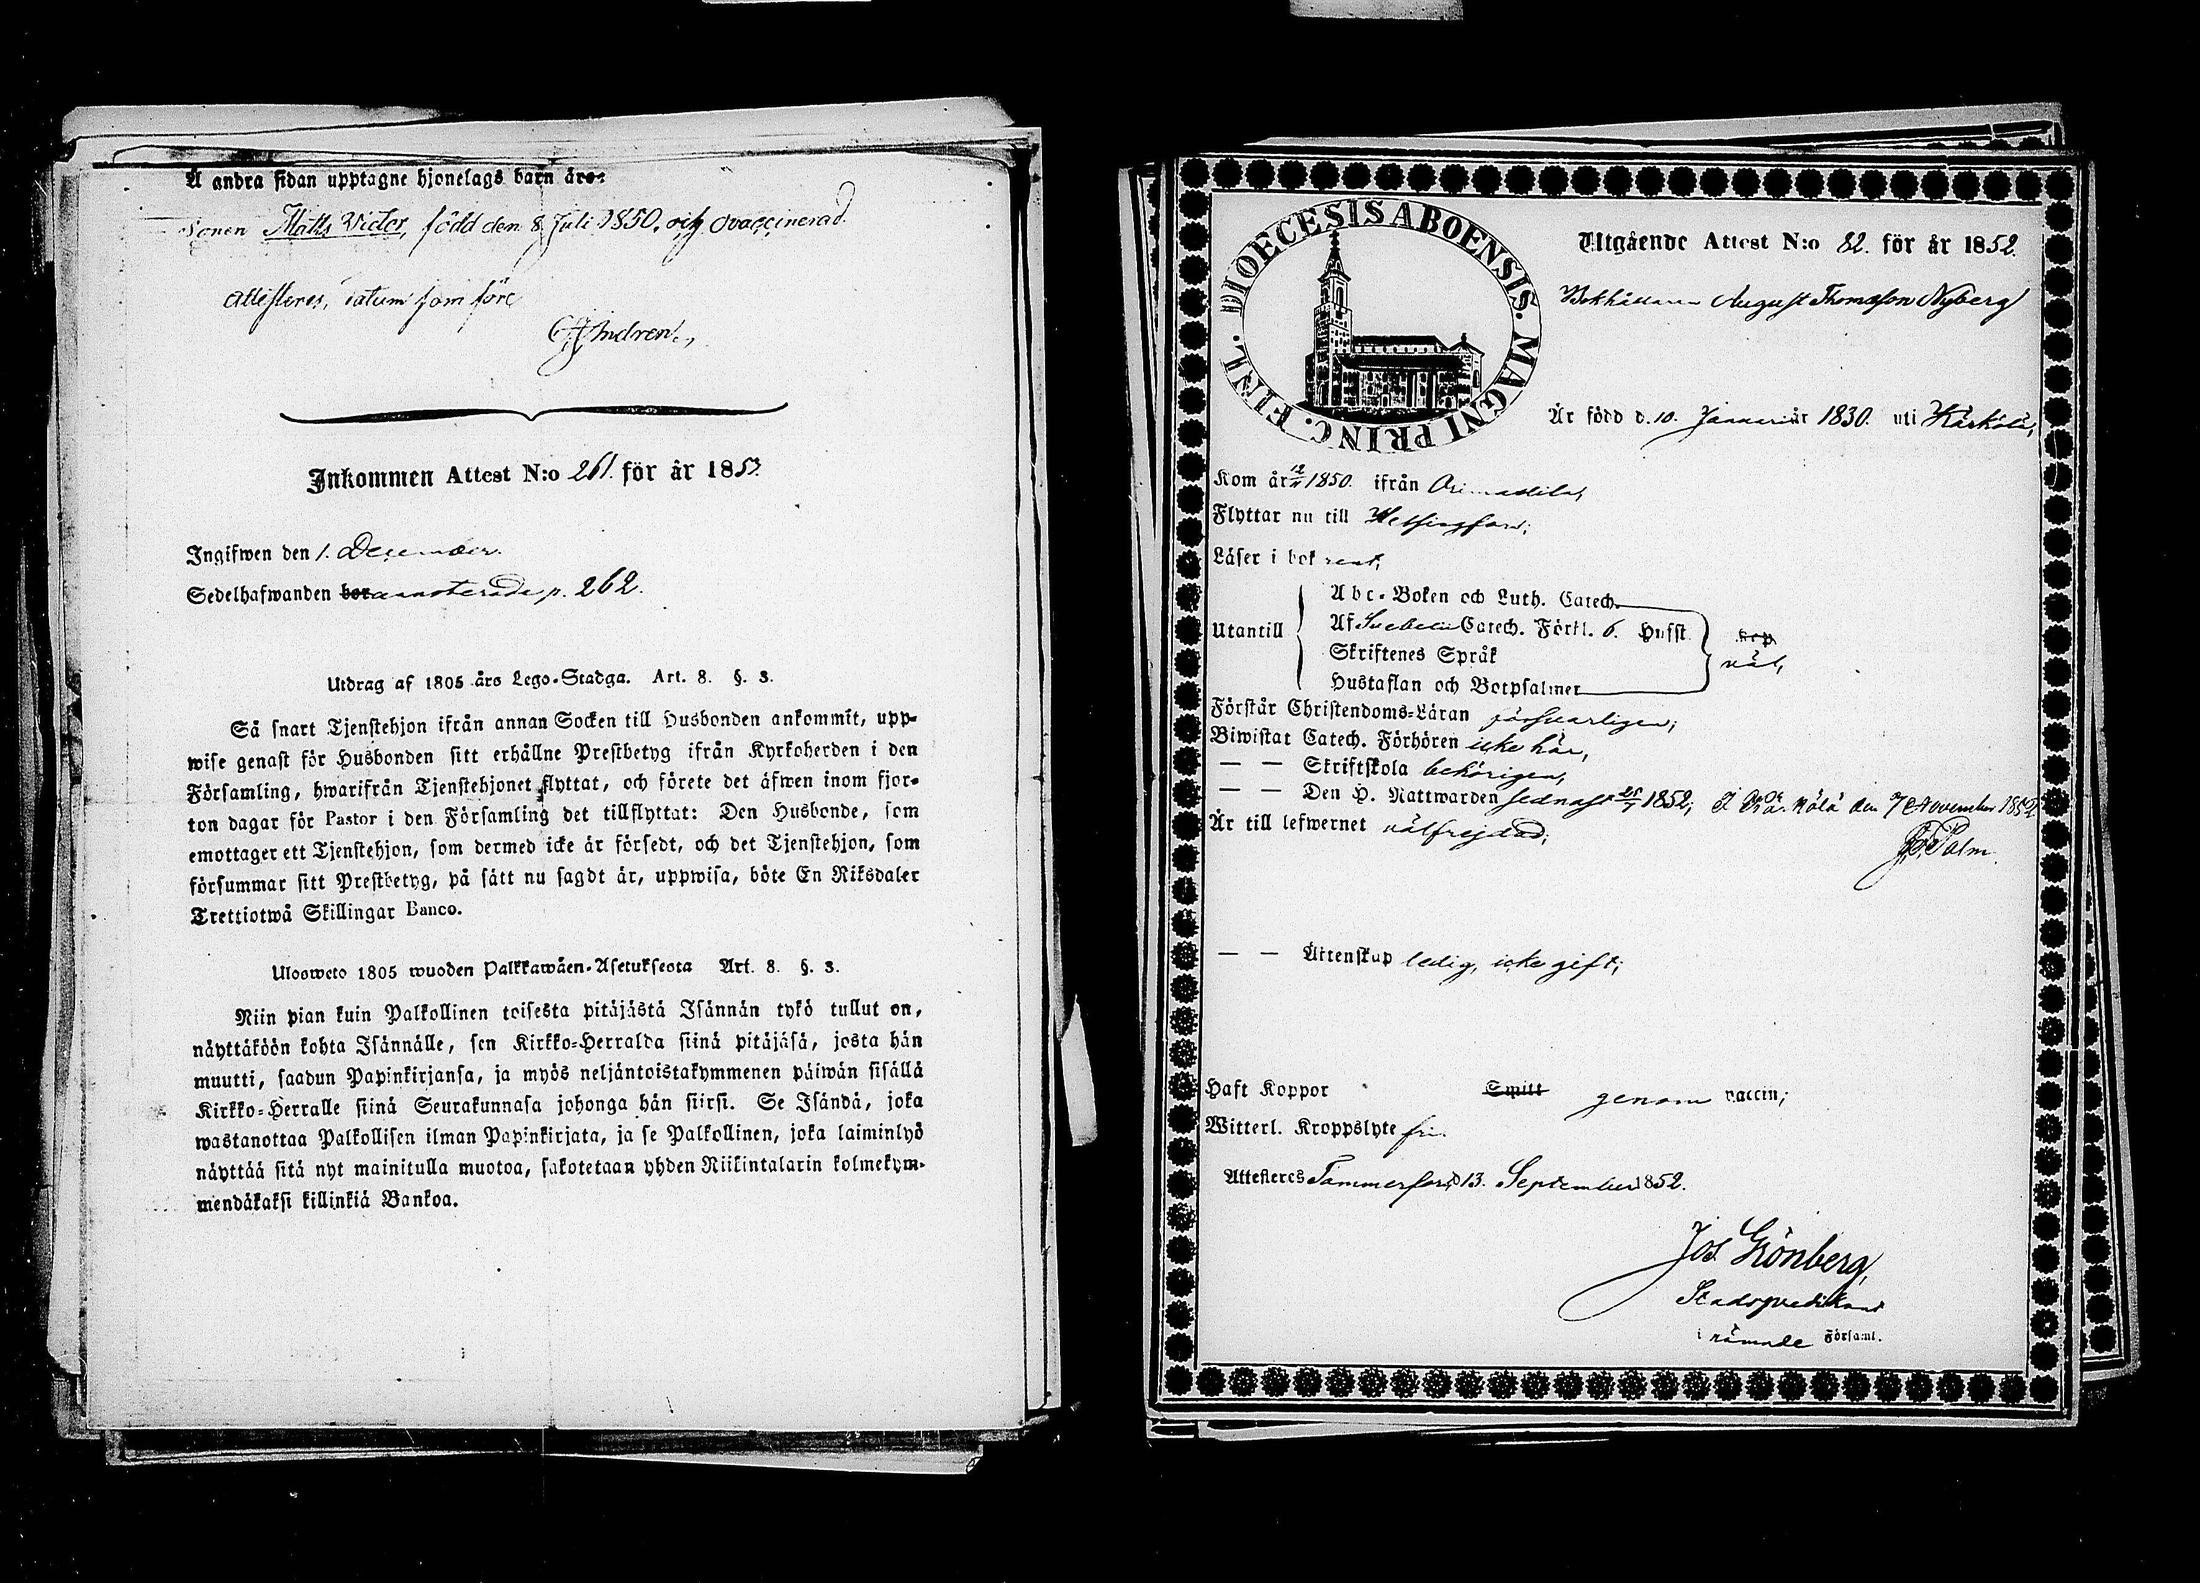 Å andra sidan upptagne hjonelags barn äro:
Sonen Matts Victor, född den 8 Juli 1850, och ovaccinerad.
attesteras, datum som före
Andren.
Inkommen Attest N:o 261. för år 1852.
Ingifwen den 1. December.
Sedelhafwanden bor annoterade p. 262.
Utdrag af 1805 års Lego-Stadga. Art. 8. §. 3.
Så snart Tjenstehjon ifrån annan Socken till Husbonden ankommit, upp-
wise genast för Husbonden sitt erhållne Prestbetyg ifrån Kyrkoherden i den
Församling, hwarifrån Tjenstehjonet flyttat, och förete det äfwen inom fjor-
ton dagar för Pastor i den Församling det tillflyttat: Den Husbonde, som
emottager ett Tjenstehjon, som dermed icke är försedt, och det Tjenstehjon, som
försummar sitt Prestbetyg, på sätt nu sagdt är, uppwisa, böte En Riksdaler
Trettiotwå Skillingar Banco.
Ulosweto 1805 wuoden Palkkawäen-Asetuksesta Art. 8. §. 3.
Niin pian kuin Palkollinen toisesta pitäjästä Isännän tykö tullut on,
näyttäköön kohta Isännälle, sen Kirkko-Herralda siinä pitäjäsä, josta hän
muutti, saadun Papinkirjansa, ja myös neljäntoistakymmenen päiwän sisällä
Kirkko-Herralle siinä Seurakunnasa johonga hän siirsi. Se Isändä, joka
wastanottaa Palkollisen ilman Papinkirjata, ja se Palkollinen, joka laiminlyö
näyttää sitä nyt mainitulla muotoa, sakotetaan yhden Riikintalarin kolmekym-
mendäkaksi killinkiä Bankoa.
DIOECESIS ABOENSIS. MAGNI PRINC. FINL.
Utgående Attest N:o 82. för år 1852.
Bokhållaren August Thomasson Nyberg
Är född d. 10. Januari år 1830. uti Kärkölä,
Kom år 12/11 1850. ifrån Orimattila,
Flyttar nu till Helsingfors;
Läser i bok rent,
Utantill
Abc-Boken och Luth. Catech.
Af Svebelii Catech. Förkl. 6. Hufst.
Skriftenes Språk
Hustaflan och Botpsalmer
väl,
Förstår Christendoms-Läran försvarligen;
Biwistat Catech. Förhören icke här,
— — Skriftskola behörigen,
— — Den H. Nattwarden sednast 25/7 1852; I Kärkölä den 7 November 1852
J. Palm.
Är till lefwernet välfrejdad;
— — Äktenskap ledig, icke gift;
Haft Koppor genom vaccin;
Witterl. Kroppslyte fri.
Attesteras Tammerfors, d 13. September 1852.
Jos. Grönberg,
Stadspredikant
i nämnde Församl.